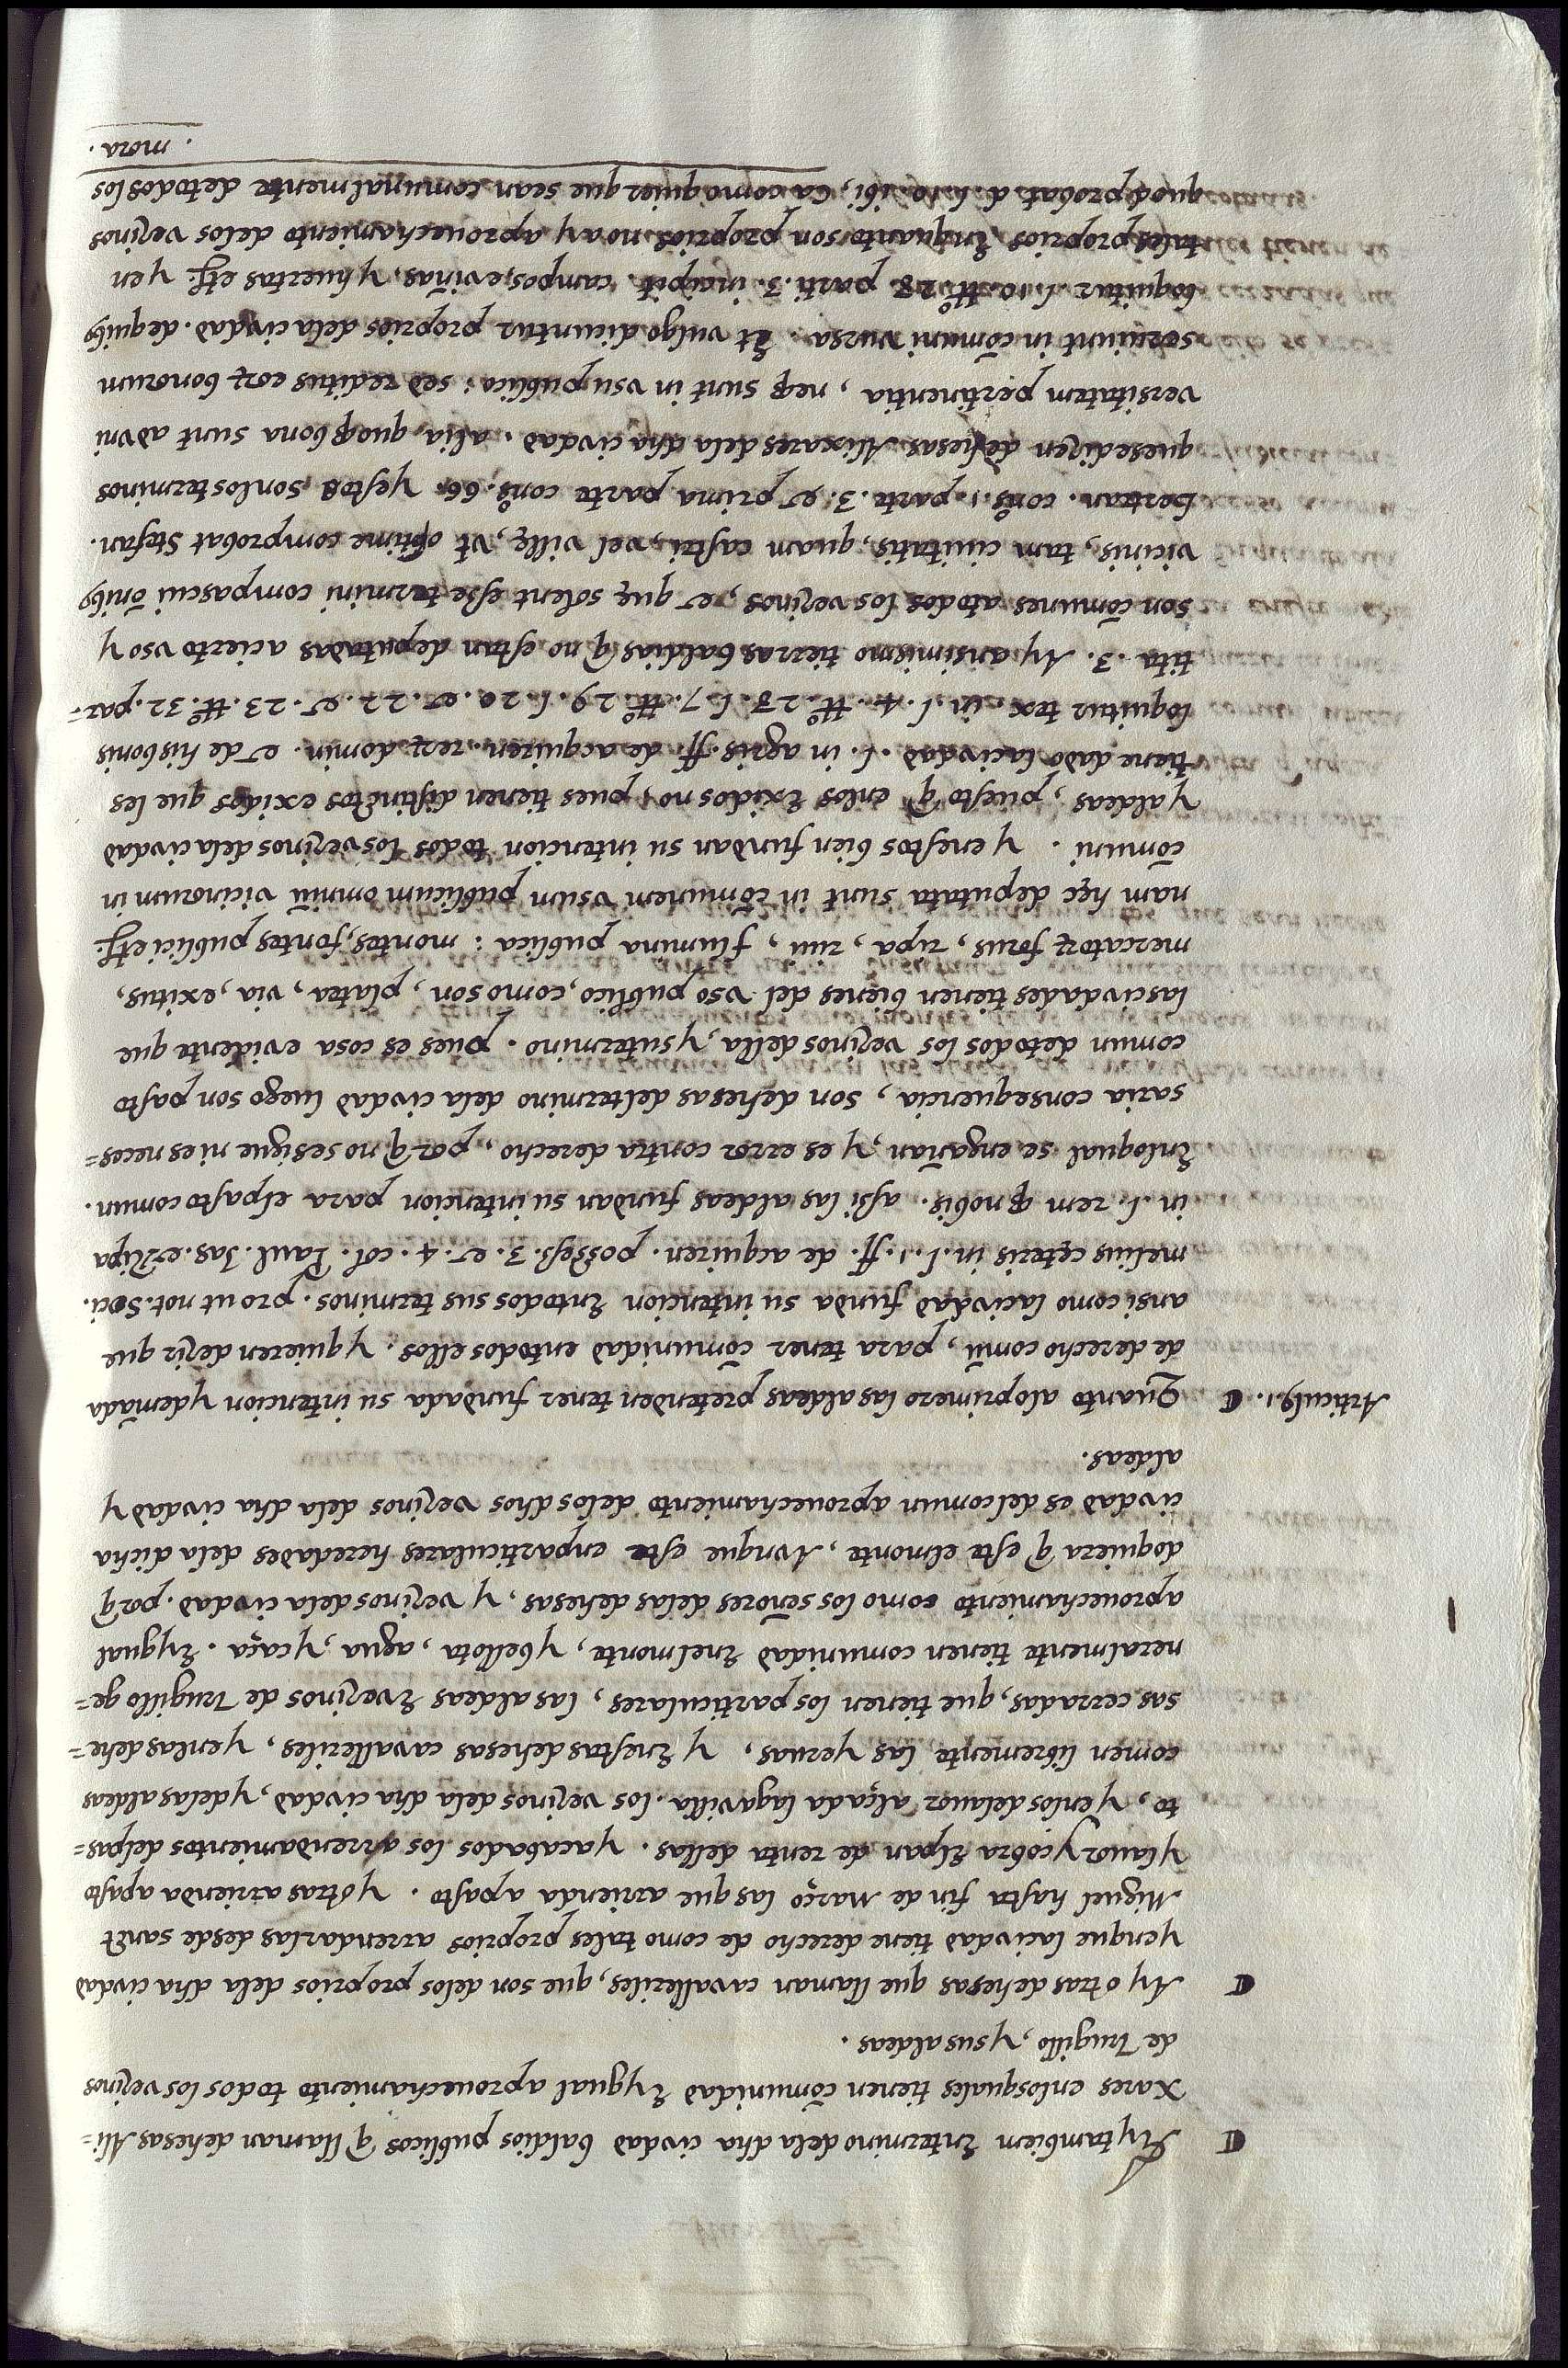 ¶ Ay tambien Entermino dela dha ciudad baldios publicos q̃ llaman dehesas Ali=
xares enlosquales tienen comũnidad E ygual aprouechamiento todos los vezinos
de Trugillo, y sus aldeas.
¶ Ay otras dehesas que llaman cavalleriles, que son delos proprios dela dha ciudad
y enque la ciudad tiene derecho de como tales proprios arrendarlas desde sanct
Miguel hasta fin de março las que arrienda apasto. y otras arrienda apasto
y lauor y cobra El pan de renta dellas. y acabados los arrendamientos del pas=
to, y enlos delauor alçada la gavilla. los vezinos dela dha ciudad, y delas aldeas
comen libremente las yeruas, y Enestas dehesas cavalleriles, y enlas dehe=
sas cerradas, que tienen los particulares, las aldeas E vezinos de Trugillo ge=
neralmente tienen comunidad Enel monte, y bellota, agua, y caça. E ygual
aprouechamiento como los señores delas dehesas, y vezinos dela ciudad. porq̃
doquiera q̃ este el monte, Aunque este enparticulares heredades dela dicha
ciudad es del comun aprouechamiento delos dhos vezinos dela dha ciudad y
aldeas.
Articulꝰ.1. ¶ Quanto alo primero las aldeas pretenden tener fundada su intencion y demãda
de derecho comũ, para tener comũnidad entodos ellos. y quieren dezir que
ansi como la ciudad funda su intencion Entodos sus terminos. prout not. Soci.
melius cęteris in .l.1. ff. de acquiren. possess. 3. et. 4. col. Paul. Jas. et Ripa
in .l. rem q̃ nobis. assi las aldeas fundan su intencion para el pasto comun.
Enloqual se engañan, y es error contra derecho, por q̃ no sesigue ni es neces=
saria consequencia, son dehesas del termino dela ciudad luego son pasto
comun detodos los vezinos della, y sutermino. pues es cosa evidente que
las ciudades tienen bienes del vso publico, como son, platea, via, exitus,
mercatoꝝ forus, ripa, riui, flumina publica: montes, fontes, publici etc̃.
nam hęc deputata sunt in cõmunem vsum publicum omniũ vicinorum in
cõmuni. y enestos bien fundan su intencion todos los vezinos dela ciudad
y aldeas, puesto q̃ enlos Exidos no, pues tienen distinctos exidos que les
tiene dado la ciudad .l. in agris. ff. de acquiren. reꝝ domin. et de his bonis
loquitur tex. in .l. 4. ttº. 28. l. 7. ttº. 29. l. 20. et. 22. et. 23. ttº. 32. par=
tita. 3. Ay ansimismo tierras baldias q̃ no estan deputadas acierto vso y
son cõmunes atodos los vezinos, et quę solent esse termini compascui õnibꝰ
vicinis, tam ciuitatis, quam castri, vel villę, vt optime comprobat Stefan.
bertran. cons. 1. parte. 3. et prima parte cons. 66. y estos sonlos terminos
quesedizen dehesas Alixares dela dha ciudad. alia quoqꝫ bona sunt ad vni
versitatem pertinentia, neqꝫ sunt in vsu publico: sed reditus eoꝝ bonorum
seruiunt in cõmuni bursa. Et vulgo dicuntur proprios dela ciudad. de quibꝰ
loquitur l.10. ttº. 28 parti. 3. incipit. campos, e viñas, y huertas etc̃. y en
tales proprios, Enquanto son proprios, no ay aprouechamiento delos vezinos
quod probat d. l. 10. ibi, Ca como quier que sean comunalmente de todos los
. mora .